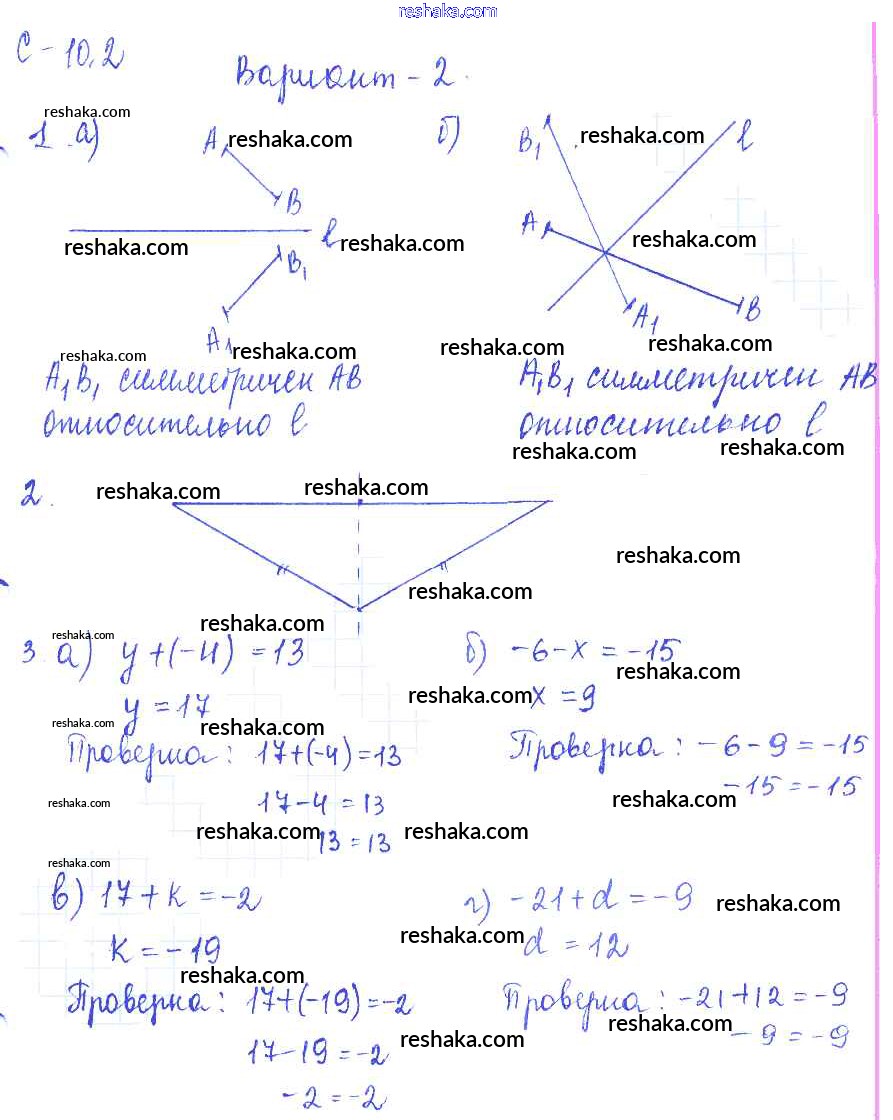 reshaka.com
С-10.2
Вариант-2.
reshaka.com
1 а) A reshaka.com
B
l
reshaka.com reshaka.com
B₁
A₁ reshaka.com
reshaka.com
A₁B₁ симметричен AB
относительно l
б) B₁ reshaka.com l
A reshaka.com
A₁ B
reshaka.com reshaka.com
A₁B₁ симметричен AB
относительно l
reshaka.com reshaka.com
2. reshaka.com reshaka.com
reshaka.com
reshaka.com
reshaka.com
reshaka.com
3. а) y+(-4)=13
y=17
reshaka.com reshaka.com
Проверка: 17+(-4)=13
17-4=13
reshaka.com
13=13
reshaka.com reshaka.com
б) -6-x=-15
reshaka.com
reshaka.com x=9
Проверка: -6-9=-15
-15=-15
reshaka.com
reshaka.com
в) 17+k=-2
k=-19
reshaka.com
Проверка: 17+(-19)=-2
17-19=-2
-2=-2
г) -21+d=-9 reshaka.com
reshaka.com d=12
Проверка: -21+12=-9
reshaka.com -9=-9
reshaka.com
reshaka.com